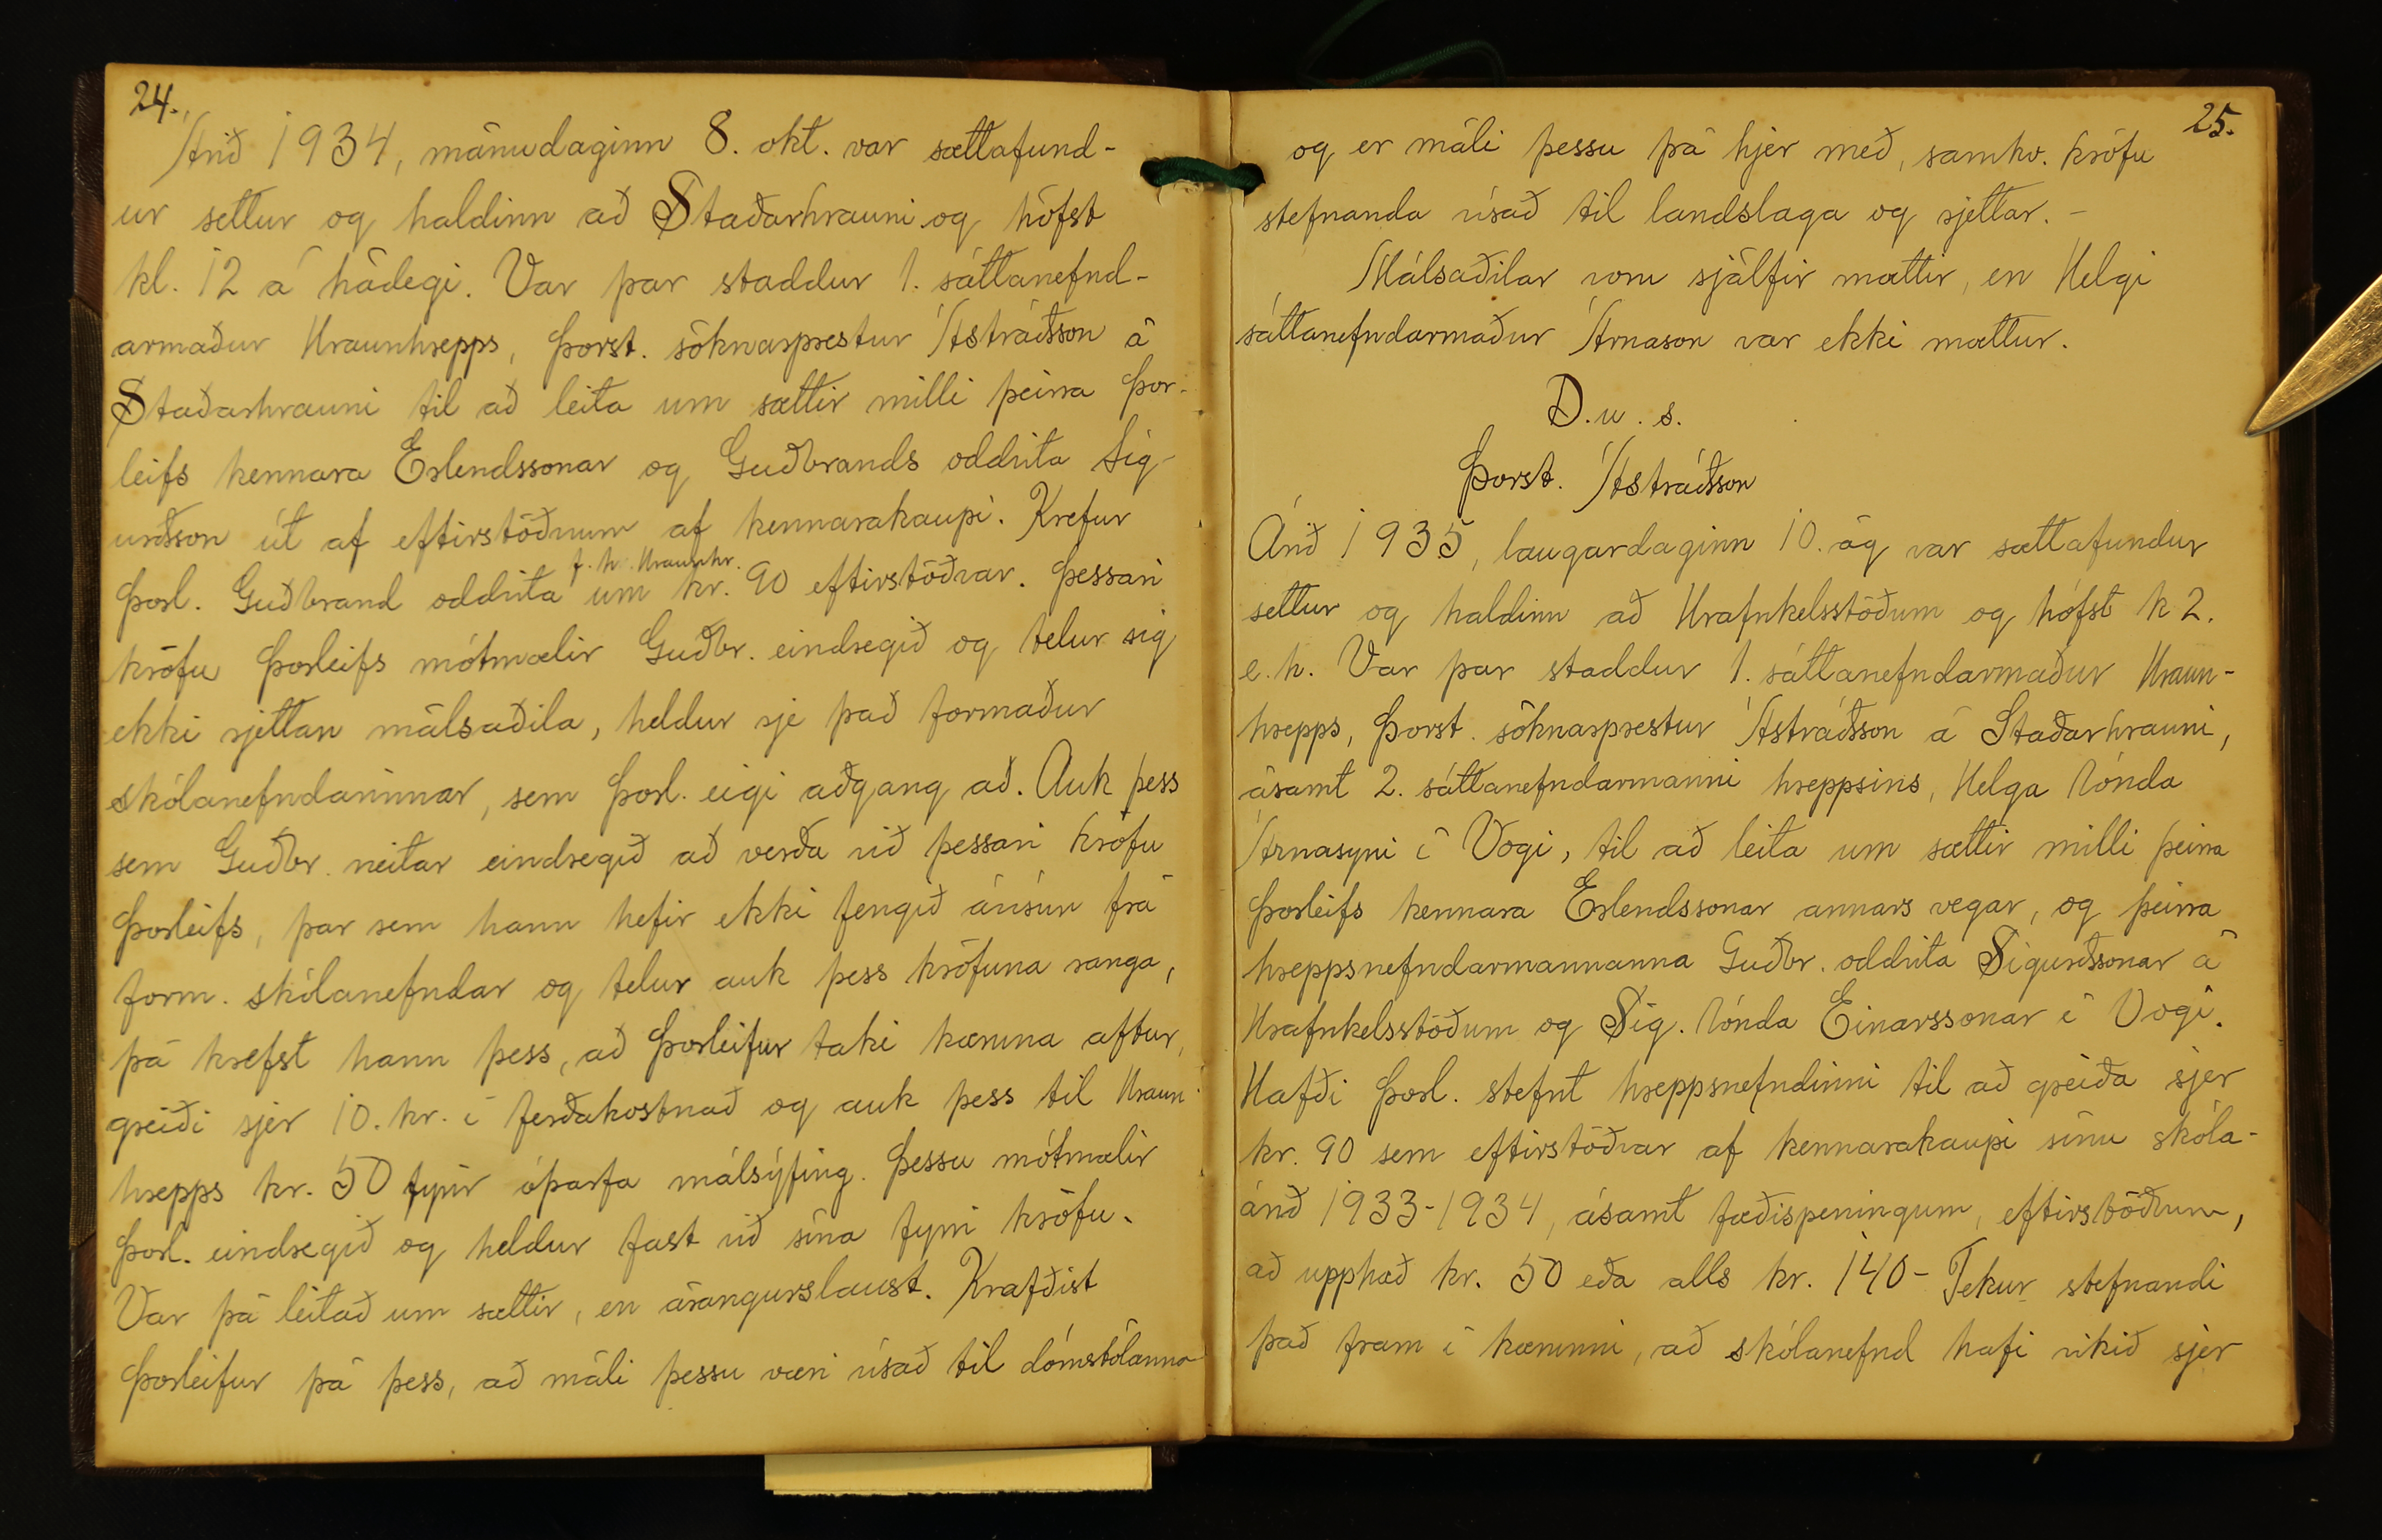 24.
Árið 1934, mánudaginn 8. okt. var sættafund-
ur settur og haldinn að Staðarhrauni og hófst
kl. 12 á hádegi. Var þar staddur 1. sáttanefnd-
armaður Hraunhrepps, Þorst. sóknarprestur Ástráðsson á
Staðarhrauni til að leita um sættir milli þeirra Þor-
leifs kennara Erlendssonar og Guðbrands oddvita Sig-
urðsson út af eftirstöðvum af kennarakaupi. Krefur
f. h. Hraunhr.
Þorl. Guðbrand oddvita um kr. 90 eftirstöðvar. Þessari
kröfu Þorleifs mótmælir Guðbr. eindregið og telur sig
ekki rjettan málsaðila, heldur sje það formaður
skólanefndarinnar, sem Þorl. eigi aðgang að. Auk þess
sem Guðbr. neitar eindregið að verða við þessari kröfu
Þorleifs, þar sem hann hefir ekki fengið ávísun frá
form. skólanefndar og telur auk þess kröfuna ranga,
þá krefst hann þess, að Þorleifur taki kæruna aftur,
greiði sjer 10. kr. í ferðakostnað og auk þess til Hraun-
hrepps kr. 50 fyrir óþarfa málsýfing. Þessu mótmælir
Þorl. eindregið og heldur fast við sína fyrri kröfu.
Var þá leitað um sættir, en árangurslaust. Krafðist
Þorleifur þá þess, að máli þessu væri vísað til dómstólanna
25.
og er máli þessu þá hjer með, samkv. kröfu
stefnanda vísað til landslaga og rjettar. -
Málsaðilar voru sjálfir mættir, en Helgi
sáttanefndarmaður Árnason var ekki mættur.
D. u. s.
Þorst. Ástráðsson
Árið 1935, laugardaginn 10. ág var sættafundur
settur og haldinn að Hrafnkelsstöðum og hófst k 2.
e. h. Var þar staddur 1. sáttanefndarmaður Hraun-
hrepps, Þorst. sóknarprestur Ástráðsson á Staðarhrauni,
ásamt 2. sáttanefndarmanni hreppsins, Helga bónda
Árnasyni í Vogi, til að leita um sættir milli þeirra
Þorleifs kennara Erlendssonar annars vegar, og þeirra
hreppsnefndarmannanna Guðbr. oddvita Sigurðssonar á
Hrafnkelsstöðum og Sig. bónda Einarssonar í Vogi.
Hafði Þorl. stefnt hreppsnefndinni til að greiða sjer
kr. 90 sem eftirstöðvar af kennarakaupi sínu skóla-
árið 1933-1934, ásamt fæðispeningum, eftirstöðvum,
að upphæð kr. 50 eða alls kr. 140 - Tekur stefnandi
það fram í kærunni, að skólanefnd hafi vikið sjer